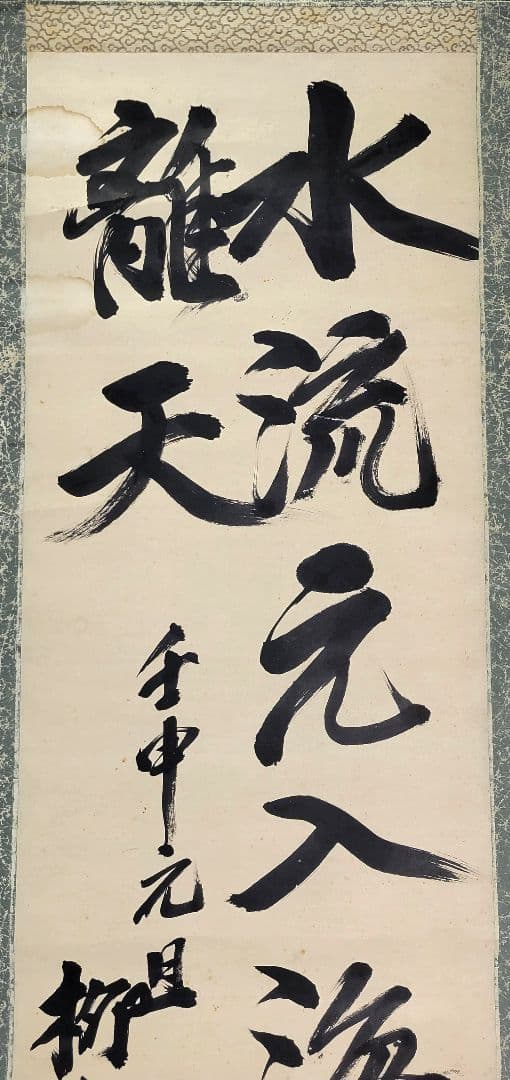 水流元入海
離天
壬申元旦
柳